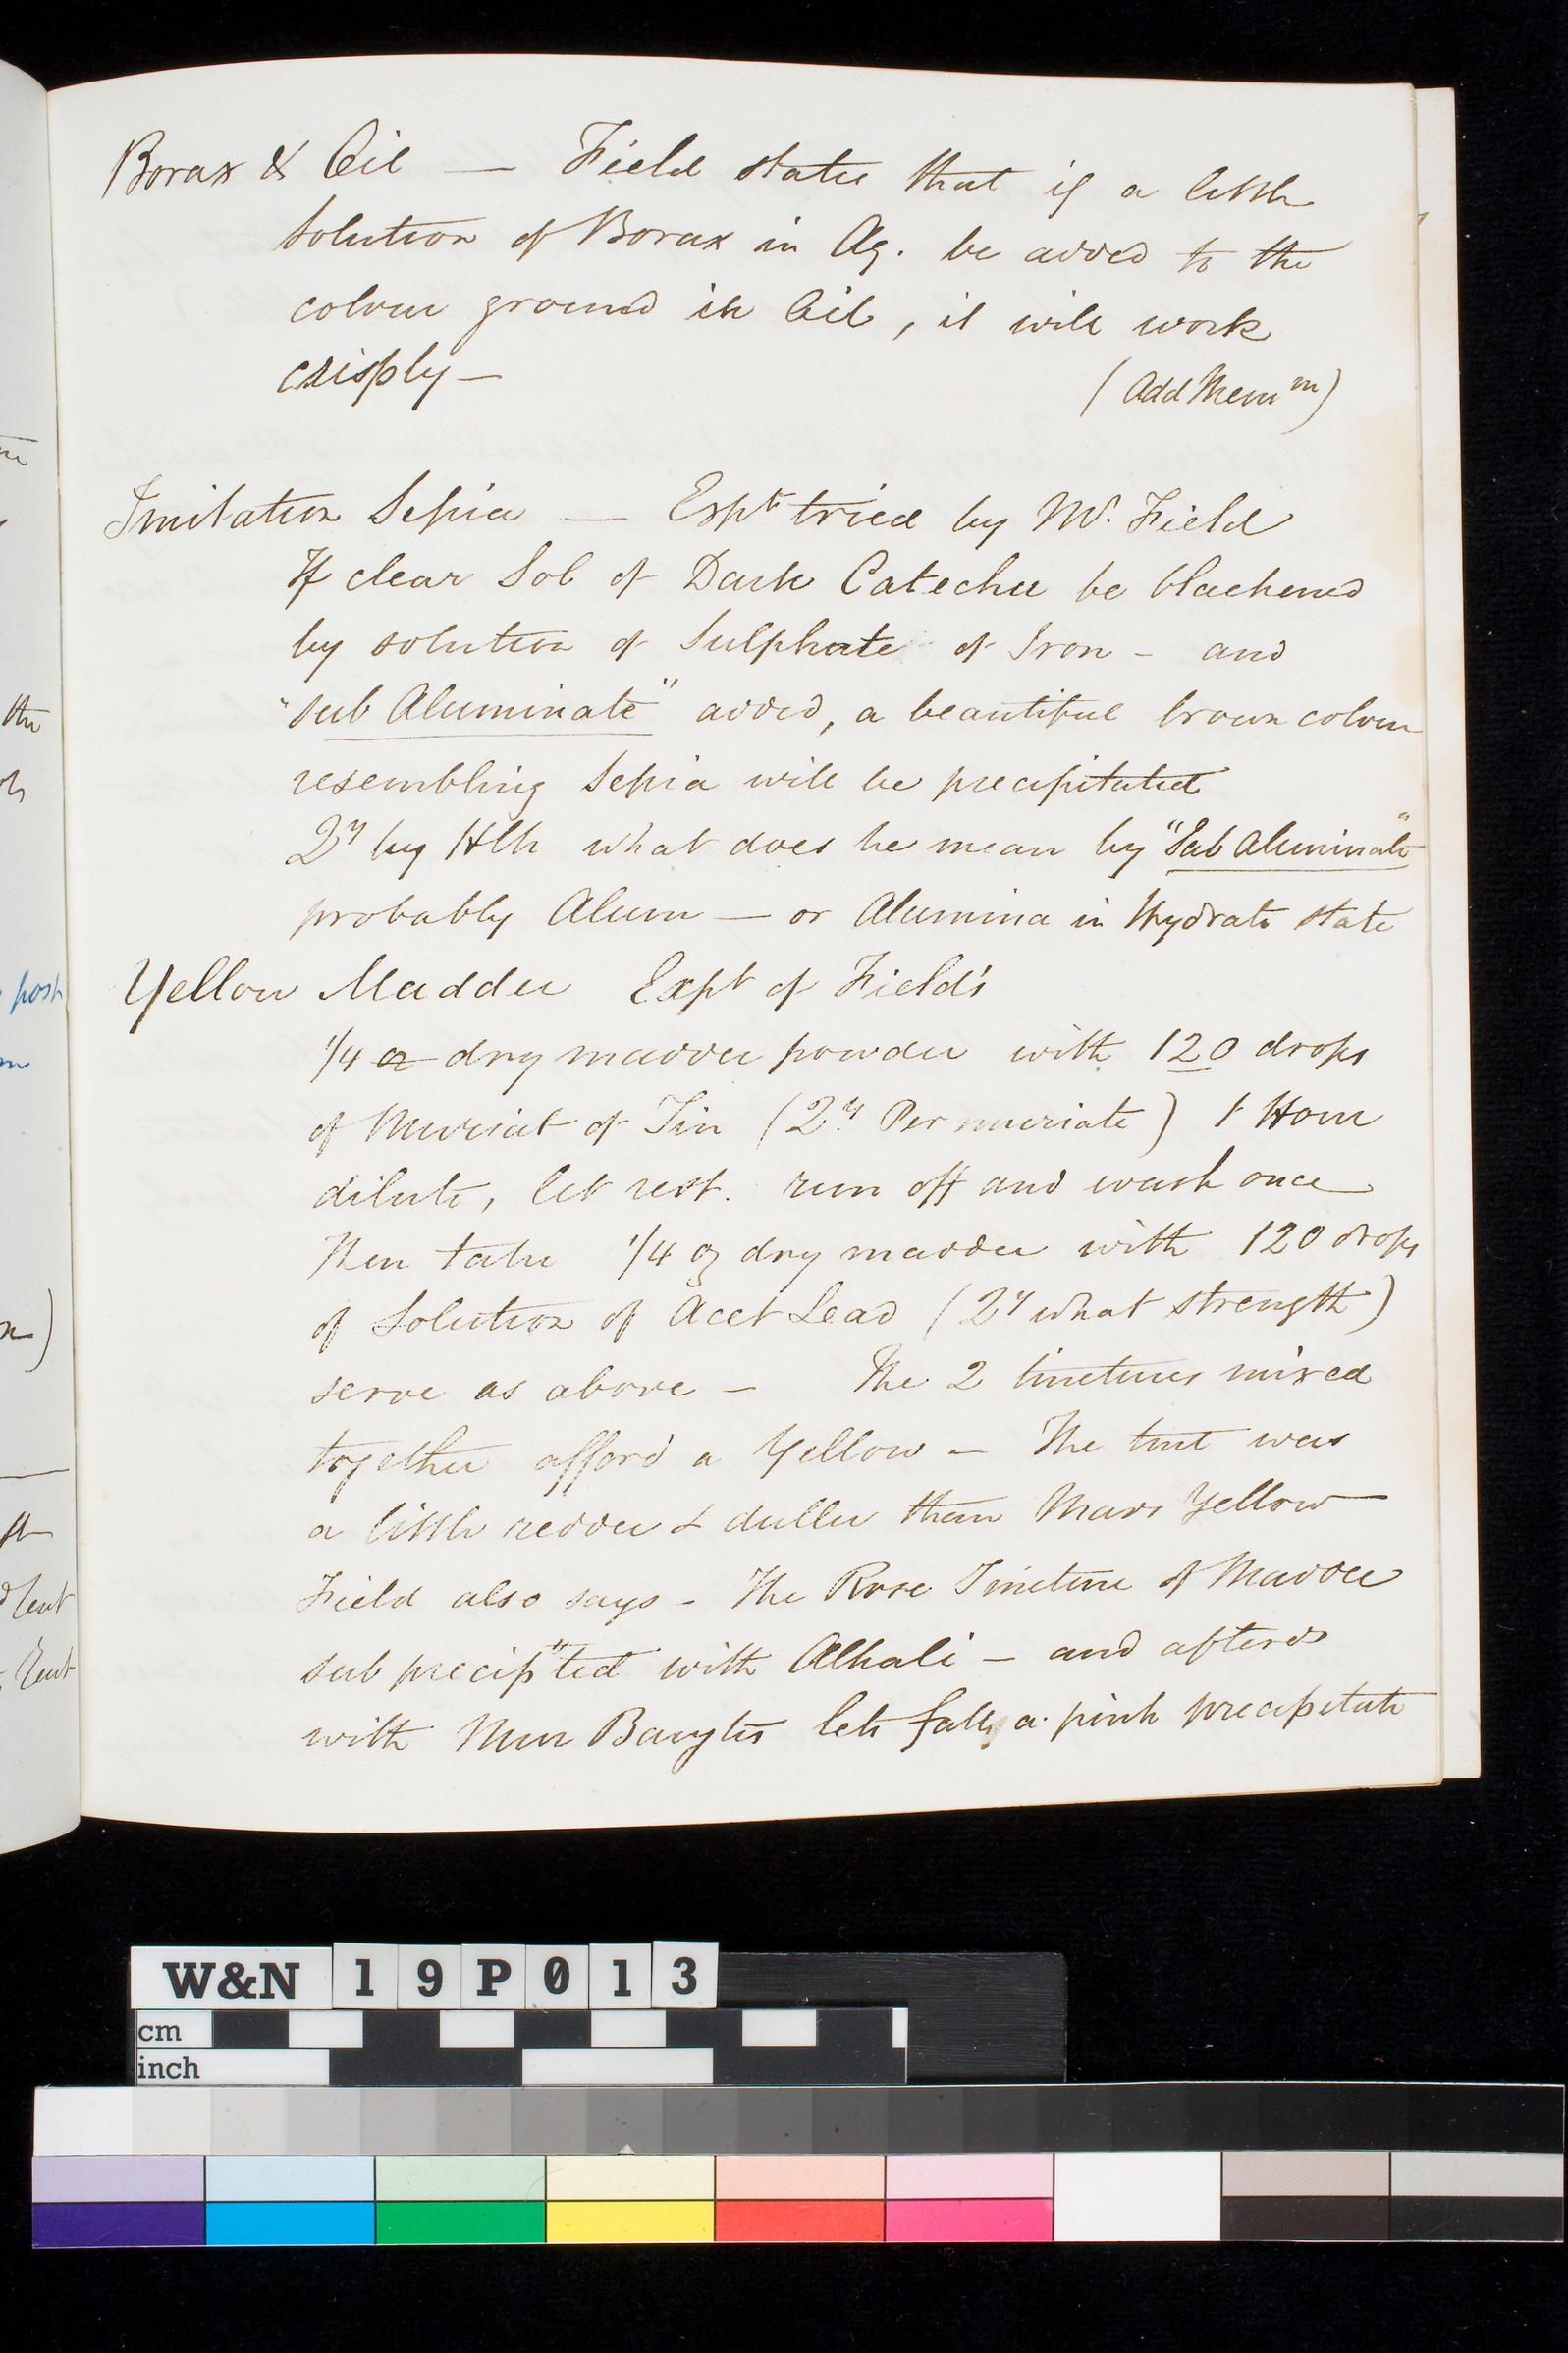 Borax & Oil — Field states that if a little
solution of Borax in Aq. be added to the
colour ground in Oil, it will work
crisply —
(Add Mem m)
Imitation Sepia — Expt tried by Mr. Field
If clear Sol of Dark Catechu be blackened
by solution of Sulphate of Iron - and
"sub Aluminate" added, a beautiful brown colour
resembling Sepia will be precipitated
Qy by what does he mean by "Sub Aluminate"
probably Alum — or Alumina in Hydrate state
Yellow Madder Expt of Field's
1/4 oz dry madder powder with 120 drops
of Muriat of Tin (Qy. Per muriate) 1 Hour
dilute, let rest. run off and wash once
Then take 1/4 oz dry madder with 120 drops
of Solution of Acet Lead (Qy what strength)
serve as above — The 2 tinctures mixed
together afford a Yellow — The tint was
a little redder & duller than Mars Yellow
Field also says - The Rose Tincture of Madder
sub precip"ted with Alkali — and afterds
with Mur Barytes lets fall a pink precipitate
the
post
)
W&N 19P013
cm
inch